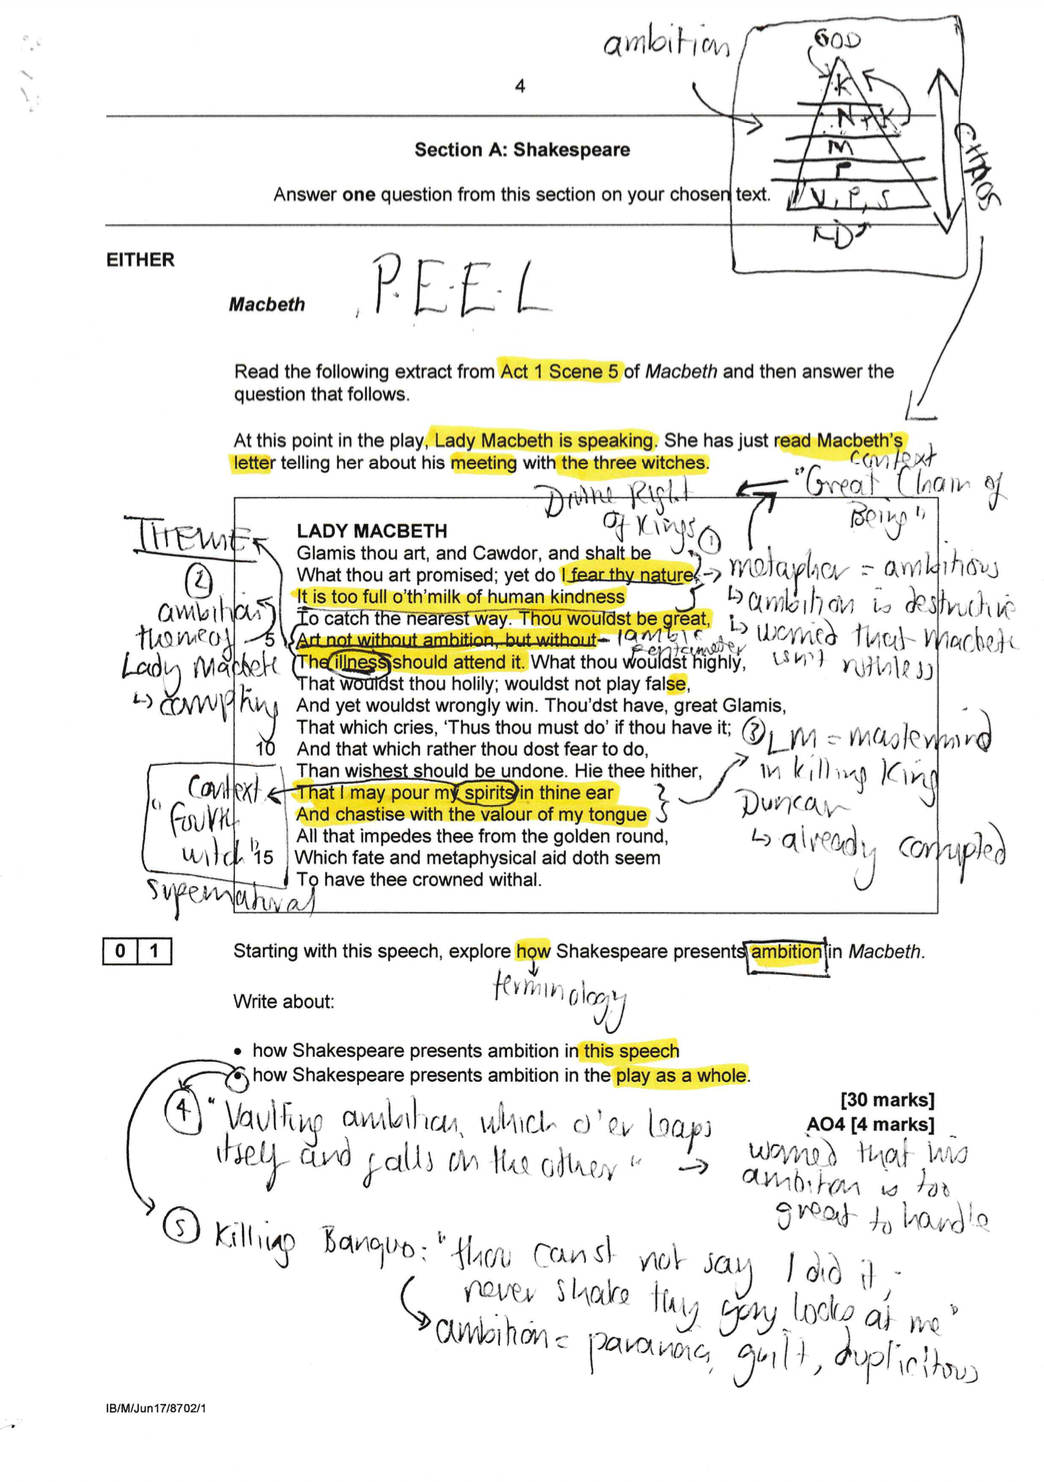 ambition
GOD
K
N+K
M
P
V, P, S
D
CHAOS
4
Section A: Shakespeare
Answer one question from this section on your chosen text.
EITHER
P.E.E.L
Macbeth
Read the following extract from Act 1 Scene 5 of Macbeth and then answer the
question that follows.
At this point in the play, Lady Macbeth is speaking. She has just read Macbeth's
letter telling her about his meeting with the three witches.
context
"Great Chain of
Being"
Divine Right
of Kings
1
metaphor = ambitious
↳ ambition is destructive
↳ worried that macbeth
isn't ruthless
THEME
2
ambition
theme of
Lady Macbeth
↳ corrupting
LADY MACBETH
Glamis thou art, and Cawdor, and shalt be
What thou art promised; yet do I fear thy nature,
It is too full o'th'milk of human kindness
To catch the nearest way. Thou wouldst be great,
5 Art not without ambition, but without
iambic
pentameter
The illness should attend it. What thou wouldst highly,
That wouldst thou holily; wouldst not play false,
And yet wouldst wrongly win. Thou'dst have, great Glamis,
That which cries, 'Thus thou must do' if thou have it;
10 And that which rather thou dost fear to do,
Than wishest should be undone. Hie thee hither,
That I may pour my spirits in thine ear
And chastise with the valour of my tongue
All that impedes thee from the golden round,
15 Which fate and metaphysical aid doth seem
To have thee crowned withal.
3 LM = mastermind
in killing King
Duncan
↳ already corrupted
Context
"fourth
witch"
supernatural
0 1 Starting with this speech, explore how Shakespeare presents ambition in Macbeth.
terminology
Write about:
• how Shakespeare presents ambition in this speech
• how Shakespeare presents ambition in the play as a whole.
[30 marks]
AO4 [4 marks]
4 "Vaulting ambition, which o'er leaps
itself and falls on the other" →
worried that his
ambition is too
great to handle
5 Killing Banquo: "thou canst not say I did it,
never shake thy gory locks at me"
ambition = paranoia, guilt, duplicitous
IB/M/Jun17/8702/1